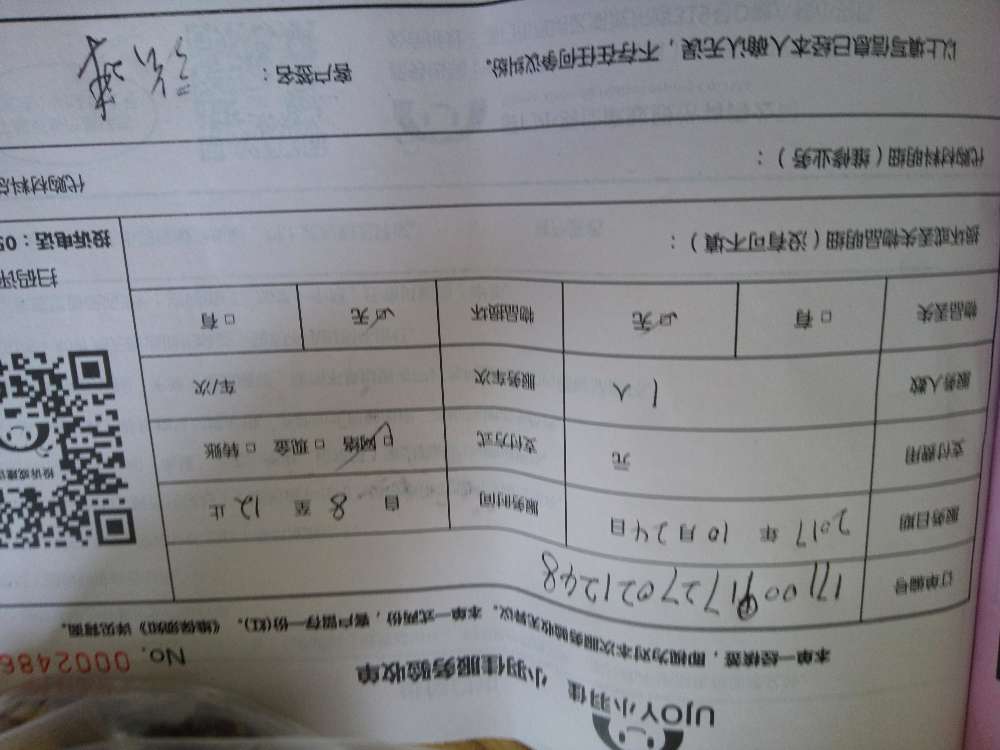 UJOY小羽佳 小羽佳服务验收单
No. 0002486
本单一经核签，即视为对本次服务验收无异议。本单一式两份，客户留存一份(红)。《维保须知》详见背面。
订单编号 17100917270212​48
服务日期 2017 年 10 月 24 日 服务时间 自 8 至 12 止
支付费用 元 支付方式 ☑网络 □ 现金 □ 转账
服务人数 1 人 服务车次 车/次
物品丢失 □ 有 ☑无 物品损坏 ☑无 □ 有
投诉或建议
扫码评
投诉电话：05
损坏或丢失物品明细（没有可不填）：
代购材料明细（维修业务）： 代购材料总
以上填写信息已经本人确认无误，不存在任何争议纠纷。 客户签名：